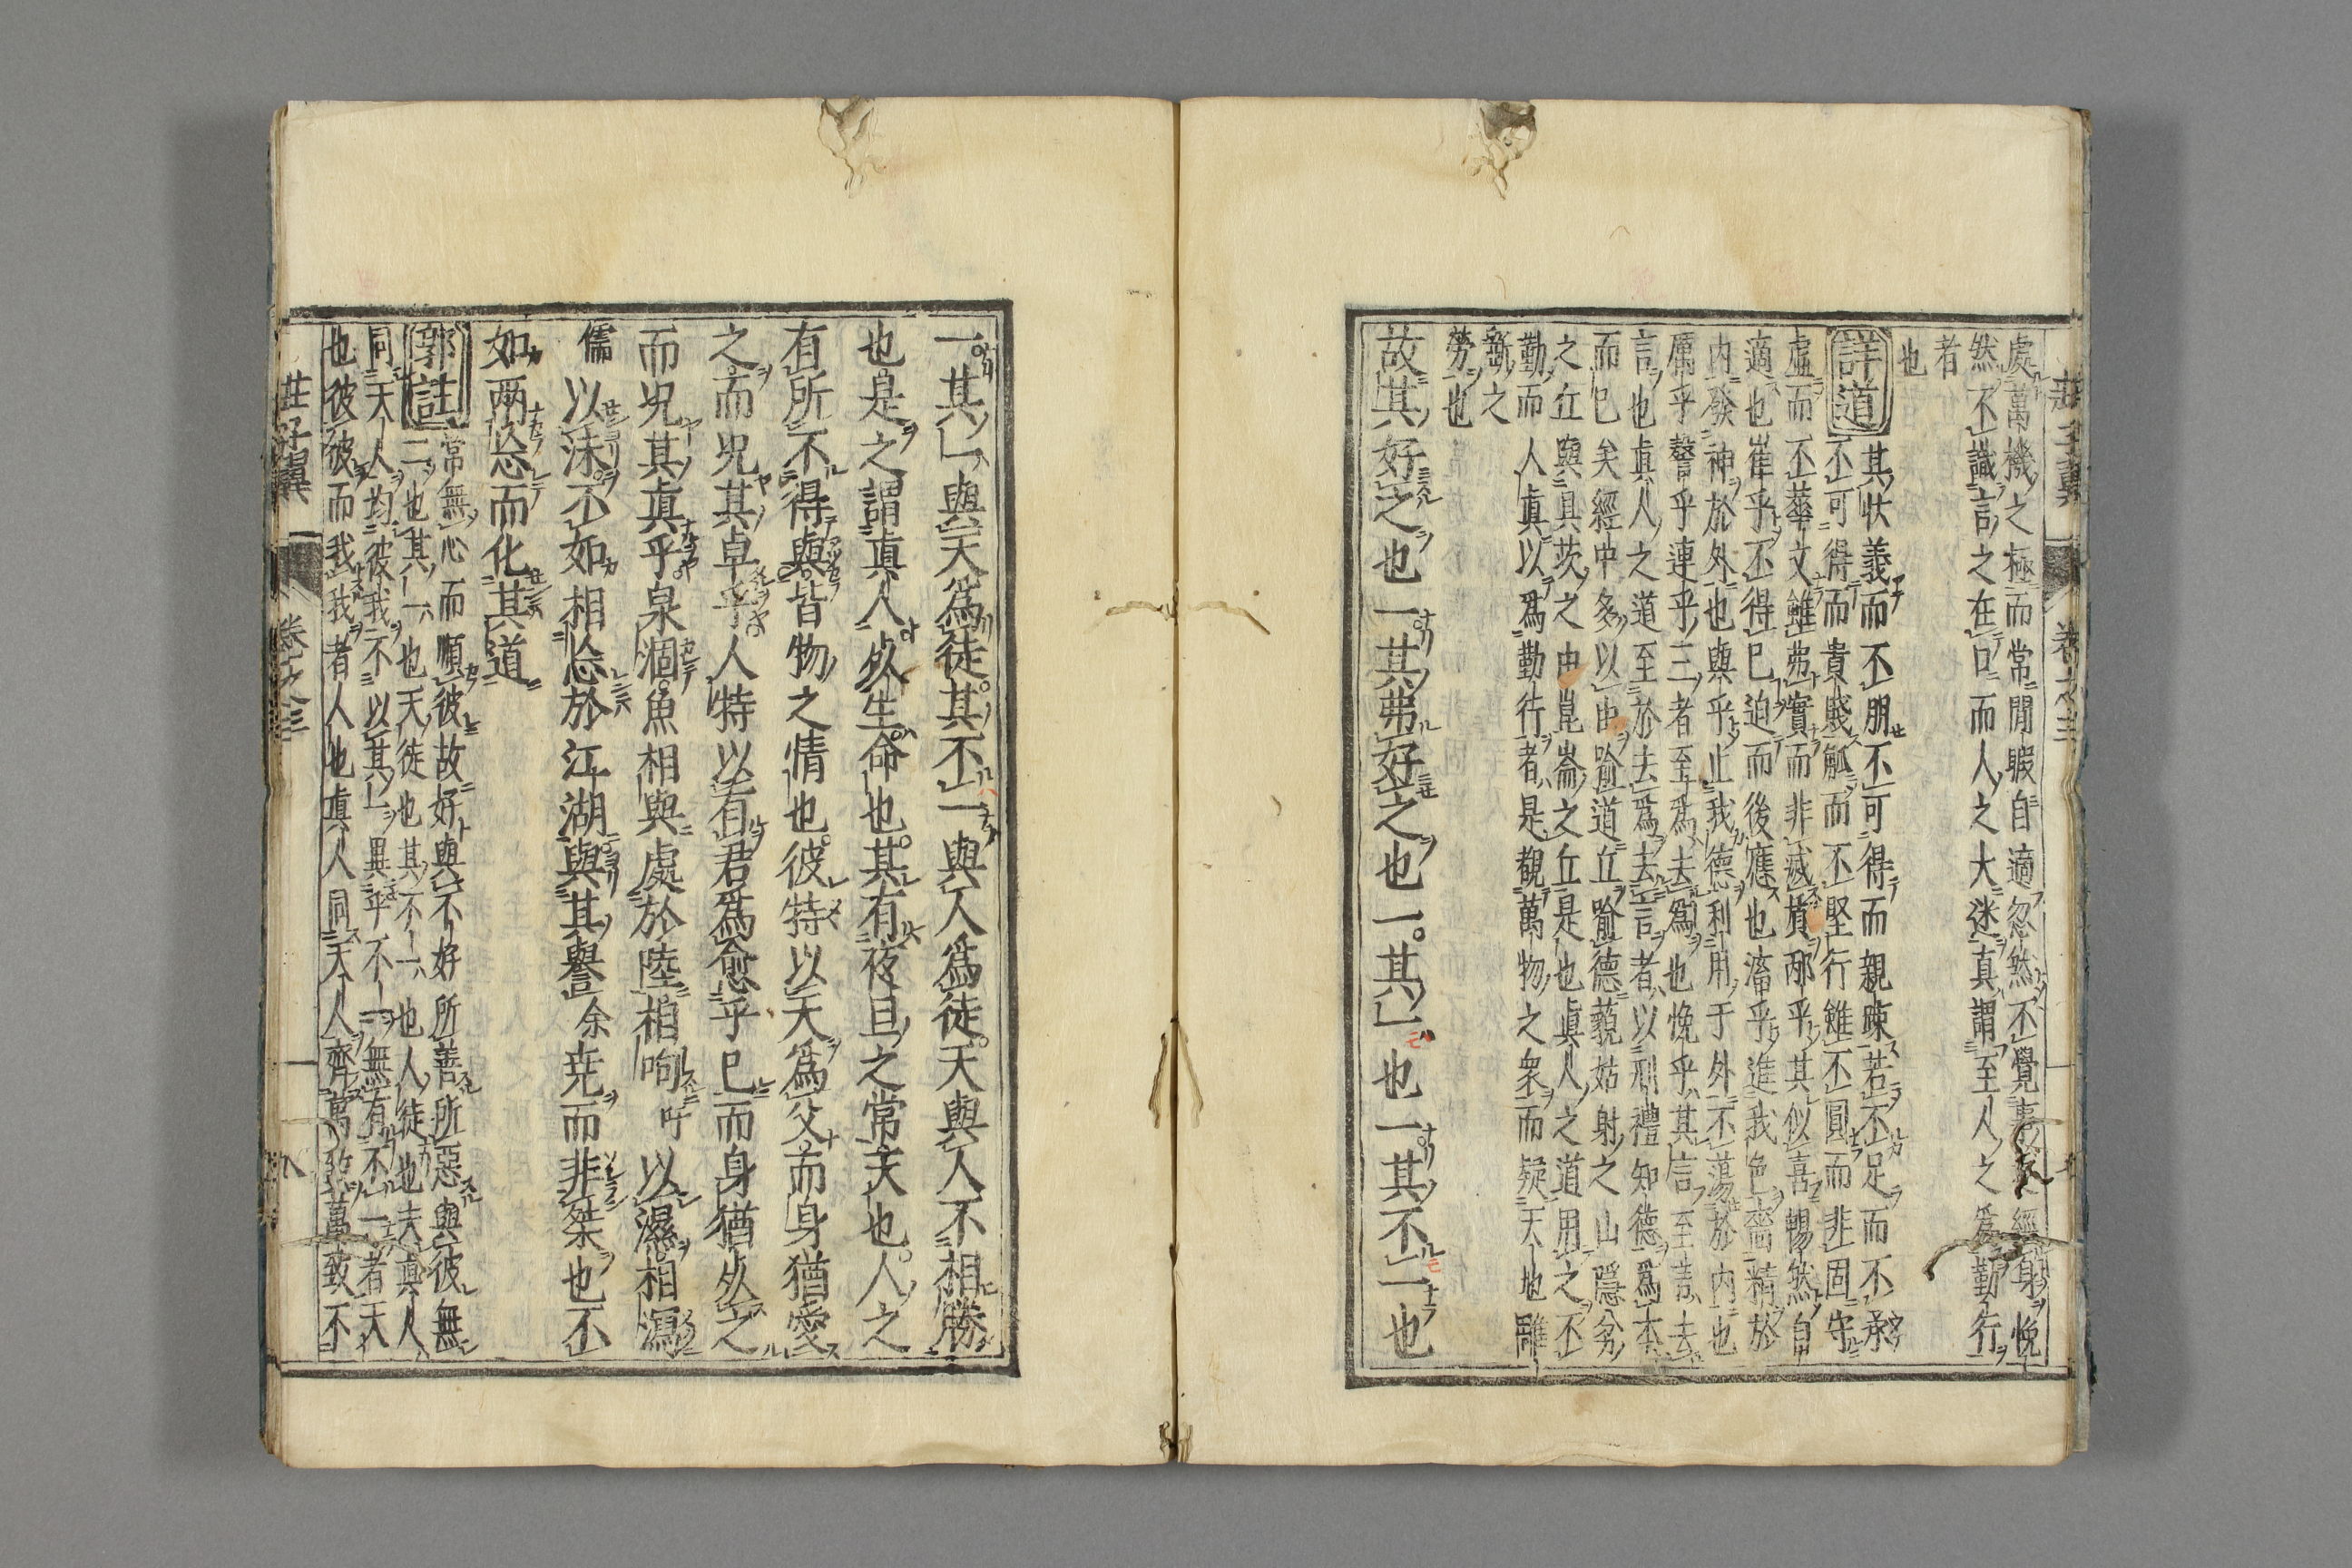 莊子翼 卷之三
處萬機之極而常閒暇自適忽然不覺事之經身悗
然不識言之在口而人之大迷真謂至人之爲勤行
者
也
詳道 其狀義而不朋不可得而親疎若不足而不承
不可得而貴賤觚而不堅行雖不圓而非固守
虛而不華文雖弗實而非滅質邴乎其似喜暢然自
適也崔乎不得已迫而後應也滀乎進我色嗇精於
內發神於外也與乎止我德利用于外不蕩於內也
厲乎謷乎連乎三者至爲去爲也悗乎其言至言去
言也真人之道至於去爲去言者以刑禮知德爲本
而已矣經中多以由喻道丘喻德藐姑射之山隱弅
之丘與具茨之由崑崙之丘是也真人之道用之不
勤而人真以爲勤行者是覩萬物之衆而疑天地雕
斲之
勞也
故其好之也一其弗好之也一其一也一其不一也
一其一與天爲徒其不一與人爲徒天與人不相勝
也是之謂真人死生命也其有夜旦之常天也人之
有所不得與皆物之情也彼特以天爲父而身猶愛
之而况其卓乎人特以有君爲愈乎已而身猶死之
而况其真乎泉涸魚相與處於陸相呴吁以濕相濡
儒以沫不如相忘於江湖與其譽余尭而非桀也不
如兩忘而化其道
郭註 常無心而順彼故好與不好所善所惡與彼無
二也其一也天徒也其不一也人徒也夫真人
同天人均彼我不以其一異乎不一無有不一者天
也彼彼而我我者人也真人同天人齊萬致萬致不
莊子翼 卷之三 八